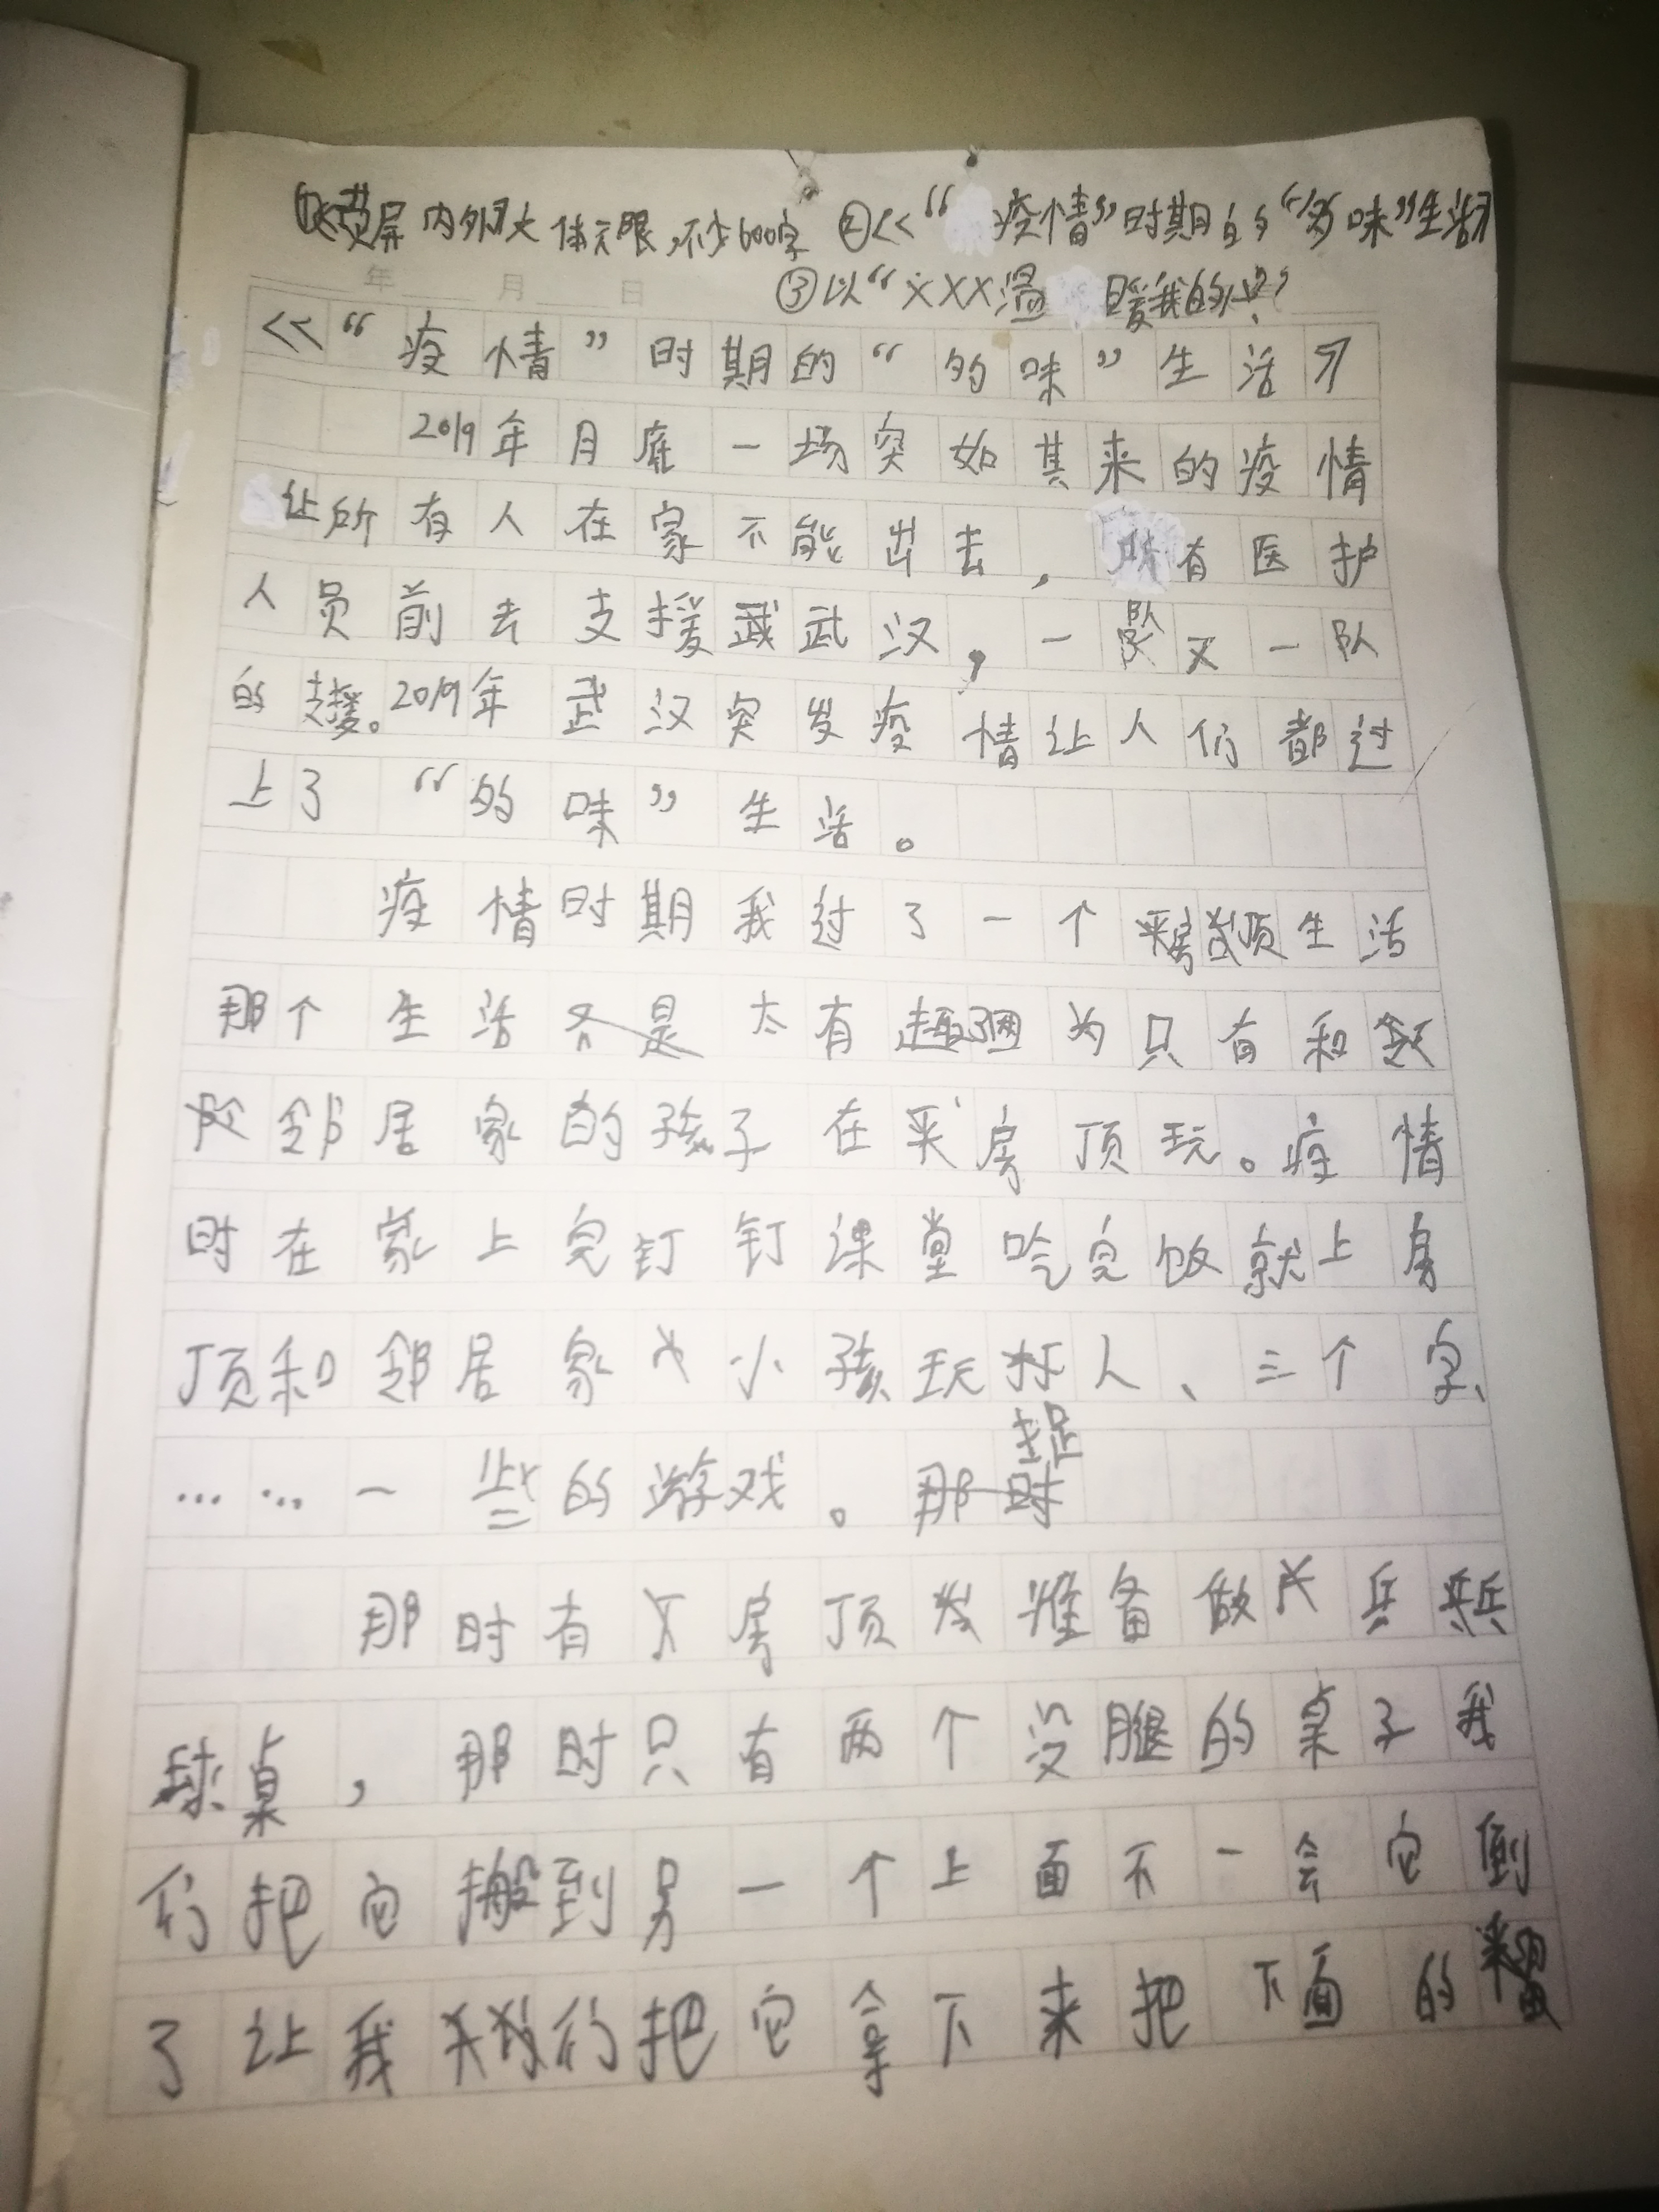 荧屏内外》文体不限,不少600字 ②<<“疫情”时期的“的味”生活》
年 月 日 ③以“XXX温暖我的心”
<<“疫情”时期的“的味”生活》
2019年月底一场突如其来的疫情
让所有人在家不能出去,所有医护
人员前去支援武汉,一队又一队
的支援。2019年武汉突发疫情让人们都过
上了“的味”生活。
疫情时期我过了一个房顶生活
那个生活不是太有趣因为只有和
邻居家的孩子在房顶玩。疫情
时在家上完钉钉课堂吃完饭就上房
顶和邻居家小孩玩木人、三个字、
……一些的游戏。那
那时有房顶准备做乒乓
球桌,那时只有两个没腿的桌子我
们把它搬到另一个上面不一会它倒
了让我们把它拿下来把下面的